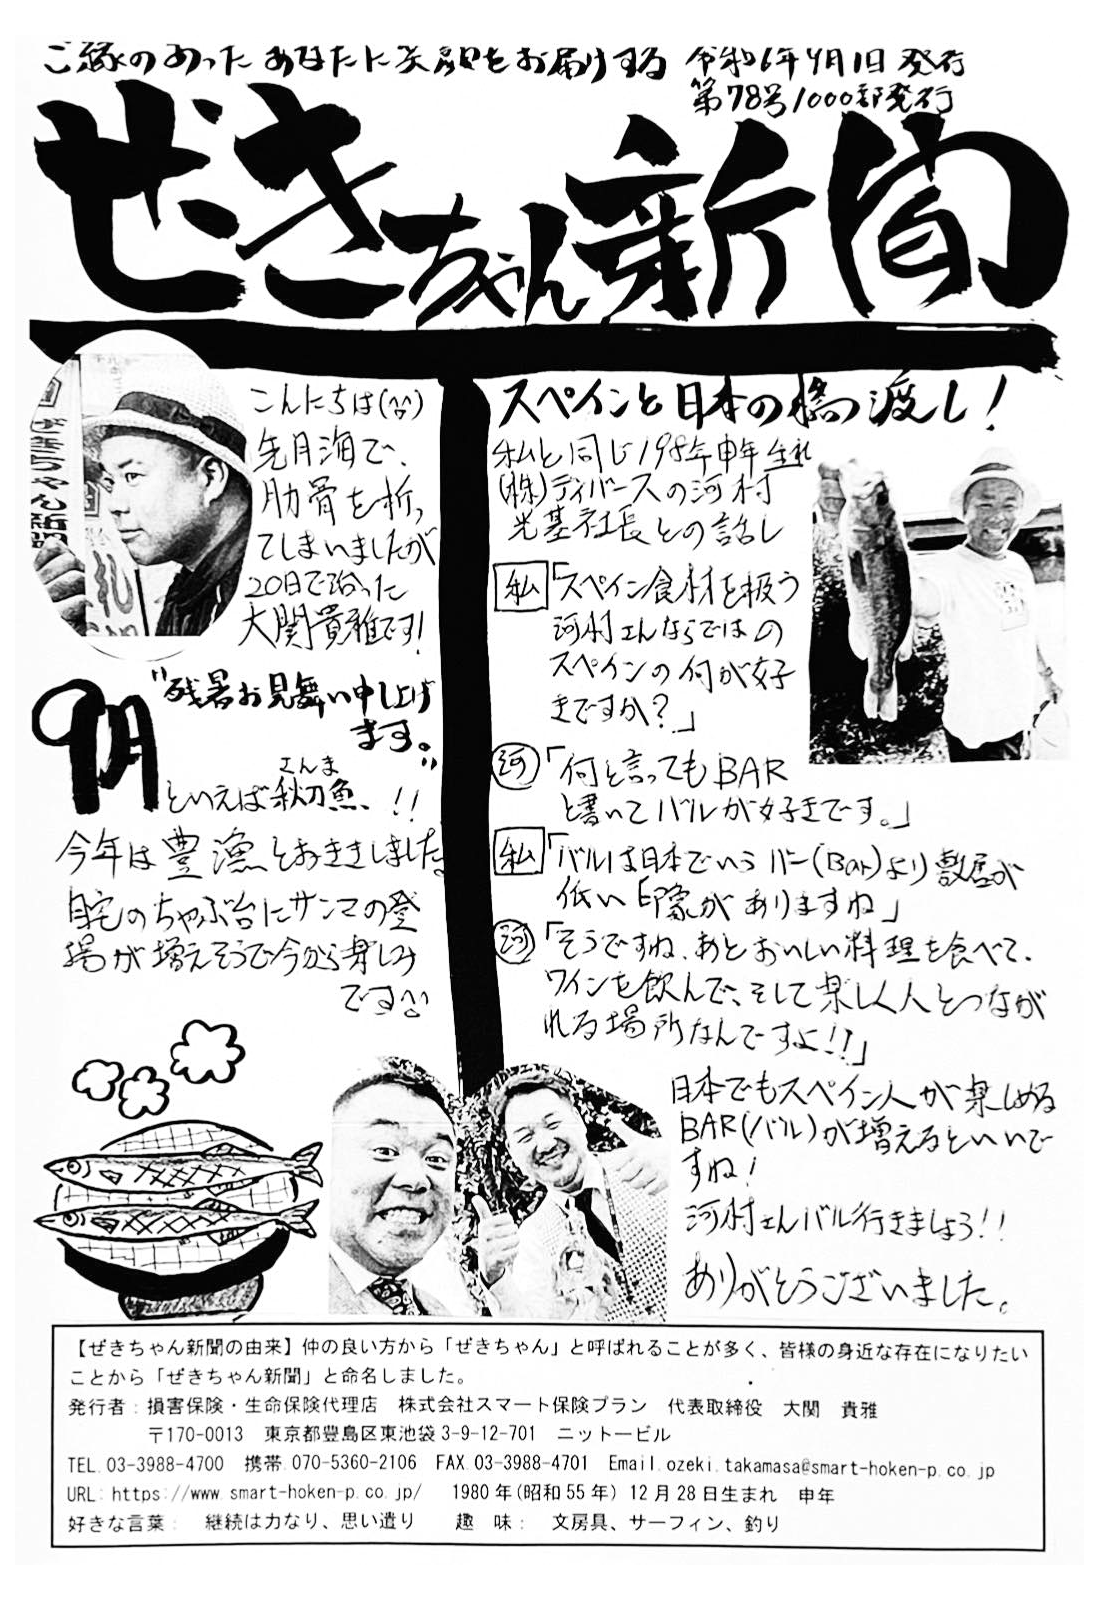 ご縁のあった あなたに笑顔をお届けする
令和6年9月1日発行
第78号1000部発行
ぜきちゃん新聞
こんにちは(^^)
先月海で、
肋骨を折っ
てしまいましたが
20日で治った
大関貴雅です!
"残暑お見舞い申し上げ
ます。"
9月
といえば秋刀魚、!!
さんま
今年は豊漁とおききしました。
自宅のちゃぶ台にサンマの登
場が増えそうで今から楽しみ
です^^
スペインと日本の橋渡し!
私と同じ1980年申年生れ
(株)ディバースの河村
光基社長との話し
私「スペイン食材を扱う
河村さんならではの
スペインの何が好
きですか?」
河「何と言ってもBAR
と書いてバルが好きです。」
私「バルは日本でいうバー(Bar)より敷居が
低い印象がありますね」
河「そうですね、あとおいしい料理を食べて、
ワインを飲んで、そして楽しく人とつなが
れる場所なんですよ!!」
日本でもスペイン人が楽しめる
BAR(バル)が増えるといいで
すね!
河村さんバル行きましょう!!
ありがとうございました。
【ぜきちゃん新聞の由来】仲の良い方から「ぜきちゃん」と呼ばれることが多く、皆様の身近な存在になりたい
ことから「ぜきちゃん新聞」と命名しました。
発行者:損害保険・生命保険代理店 株式会社スマート保険プラン 代表取締役 大関 貴雅
〒170-0013 東京都豊島区東池袋3-9-12-701 ニットービル
TEL.03-3988-4700 携帯.070-5360-2106 FAX.03-3988-4701 Email.ozeki.takamasa@smart-hoken-p.co.jp
URL: https://www.smart-hoken-p.co.jp/ 1980年(昭和55年) 12月28日生まれ 申年
好きな言葉: 継続は力なり、思い遣り 趣 味: 文房具、サーフィン、釣り